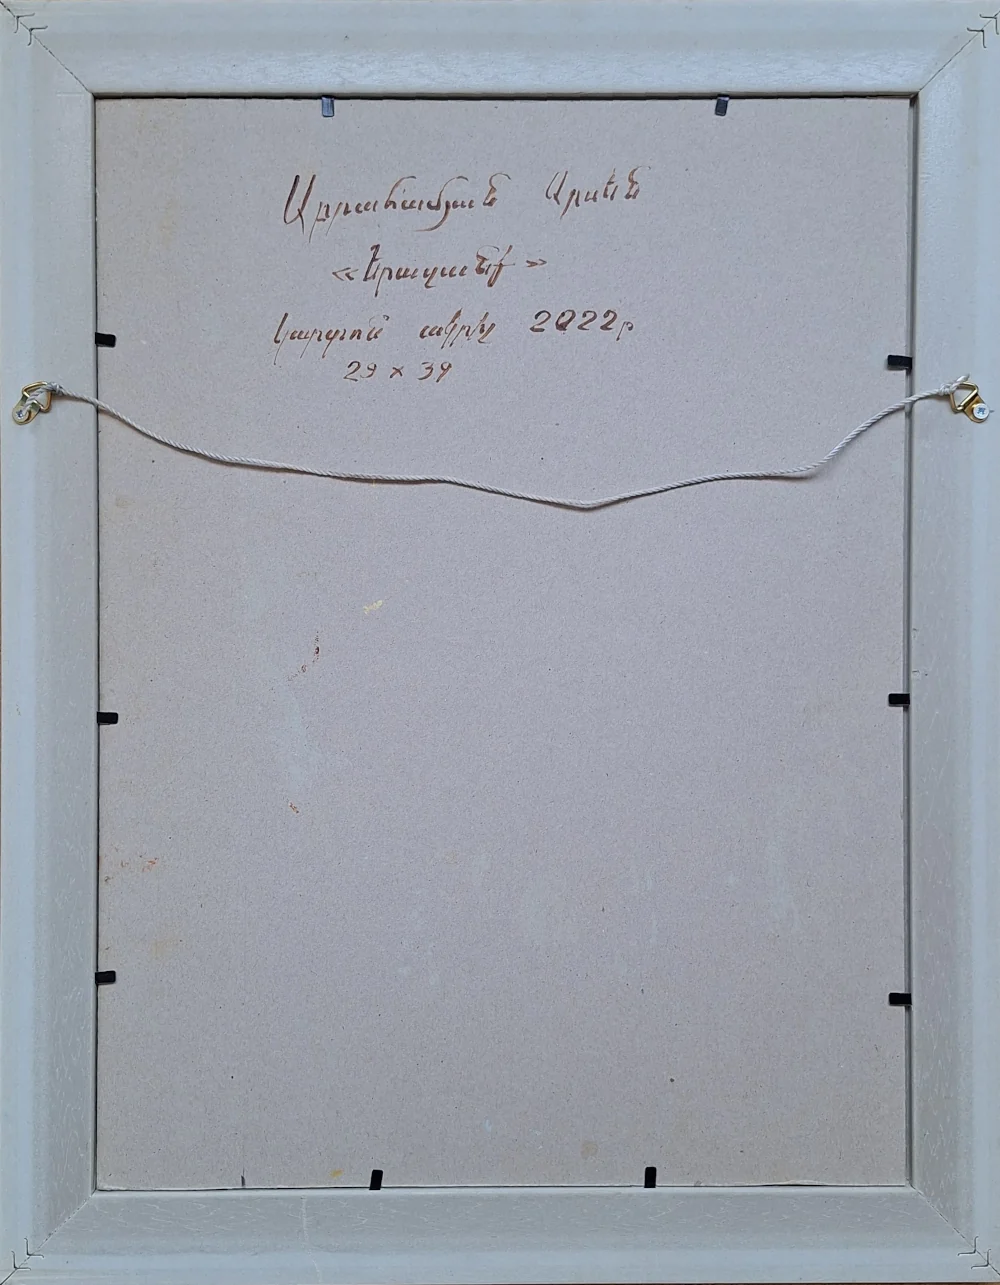 Աբրահամյան Արսեն
«Երազանք»
կարտոն ակրիլ 2022թ
29 x 39